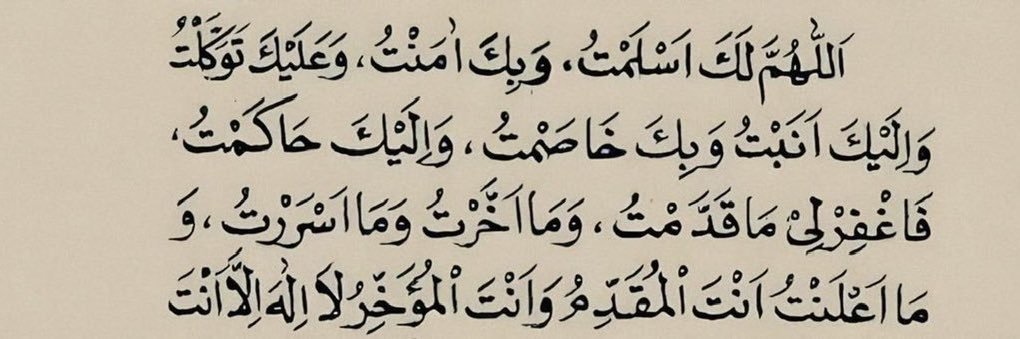 اَللّٰهُمَّ لَكَ اَسْلَمْتُ، وَبِكَ اٰمَنْتُ، وَعَلَيْكَ تَوَكَّلْتُ
وَاِلَيْكَ اَنَبْتُ وَبِكَ خَاصَمْتُ، وَاِلَيْكَ حَاكَمْتُ،
فَاغْفِرْلِيْ مَا قَدَّمْتُ، وَمَا اَخَّرْتُ وَمَا اَسْرَرْتُ، وَ
مَا اَعْلَنْتُ اَنْتَ الْمُقَدِّمُ وَاَنْتَ الْمُؤَخِّرُ لَا اِلٰهَ اِلَّا اَنْتَ